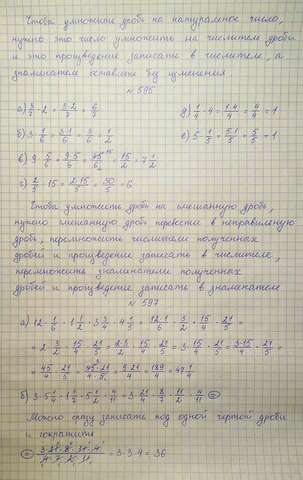 Чтобы умножить дробь на натуральное число,
нужно это число умножить на числитель дроби
и это произведение записать в числителе, а
знаменатель оставить без изменения
№ 595
а) 3/7 · 2 = 3·2/7 = 6/7
д) 1/4 · 4 = 1·4/4 = 4/4 = 1
б) 3 · 1/6 = 3·1/6 = 3/6 = 1/2
е) 5 · 1/5 = 5·1/5 = 5/5 = 1
в) 9 · 5/6 = 9·5/6 = 45/6 = 15/2 = 7 1/2
г) 2/5 · 15 = 2·15/5 = 30/5 = 6
Чтобы умножить дробь на смешанную дробь,
нужно смешанную дробь перевести в неправильную
дробь, перемножить числители полученных
дробей и произведение записать в числителе,
перемножить знаменатели полученных
дробей и произведение записать в знаменателе
№ 597
а) 12 · 1/6 · 1 1/2 · 3 3/4 · 4 1/5 = 12·1/6 · 3/2 · 15/4 · 21/5 =
= 2 · 3/2 · 15/4 · 21/5 = 2·3/2 · 15/4 · 21/5 = 3 · 15/4 · 21/5 = 3·15/4 · 21/5 =
= 45/4 · 21/5 = 45·21/4·5 = 9·21/4 = 189/4 = 47 1/4
Можно сразу записать под одной чертой дроби
и сократить
= 3·3·4 = 36